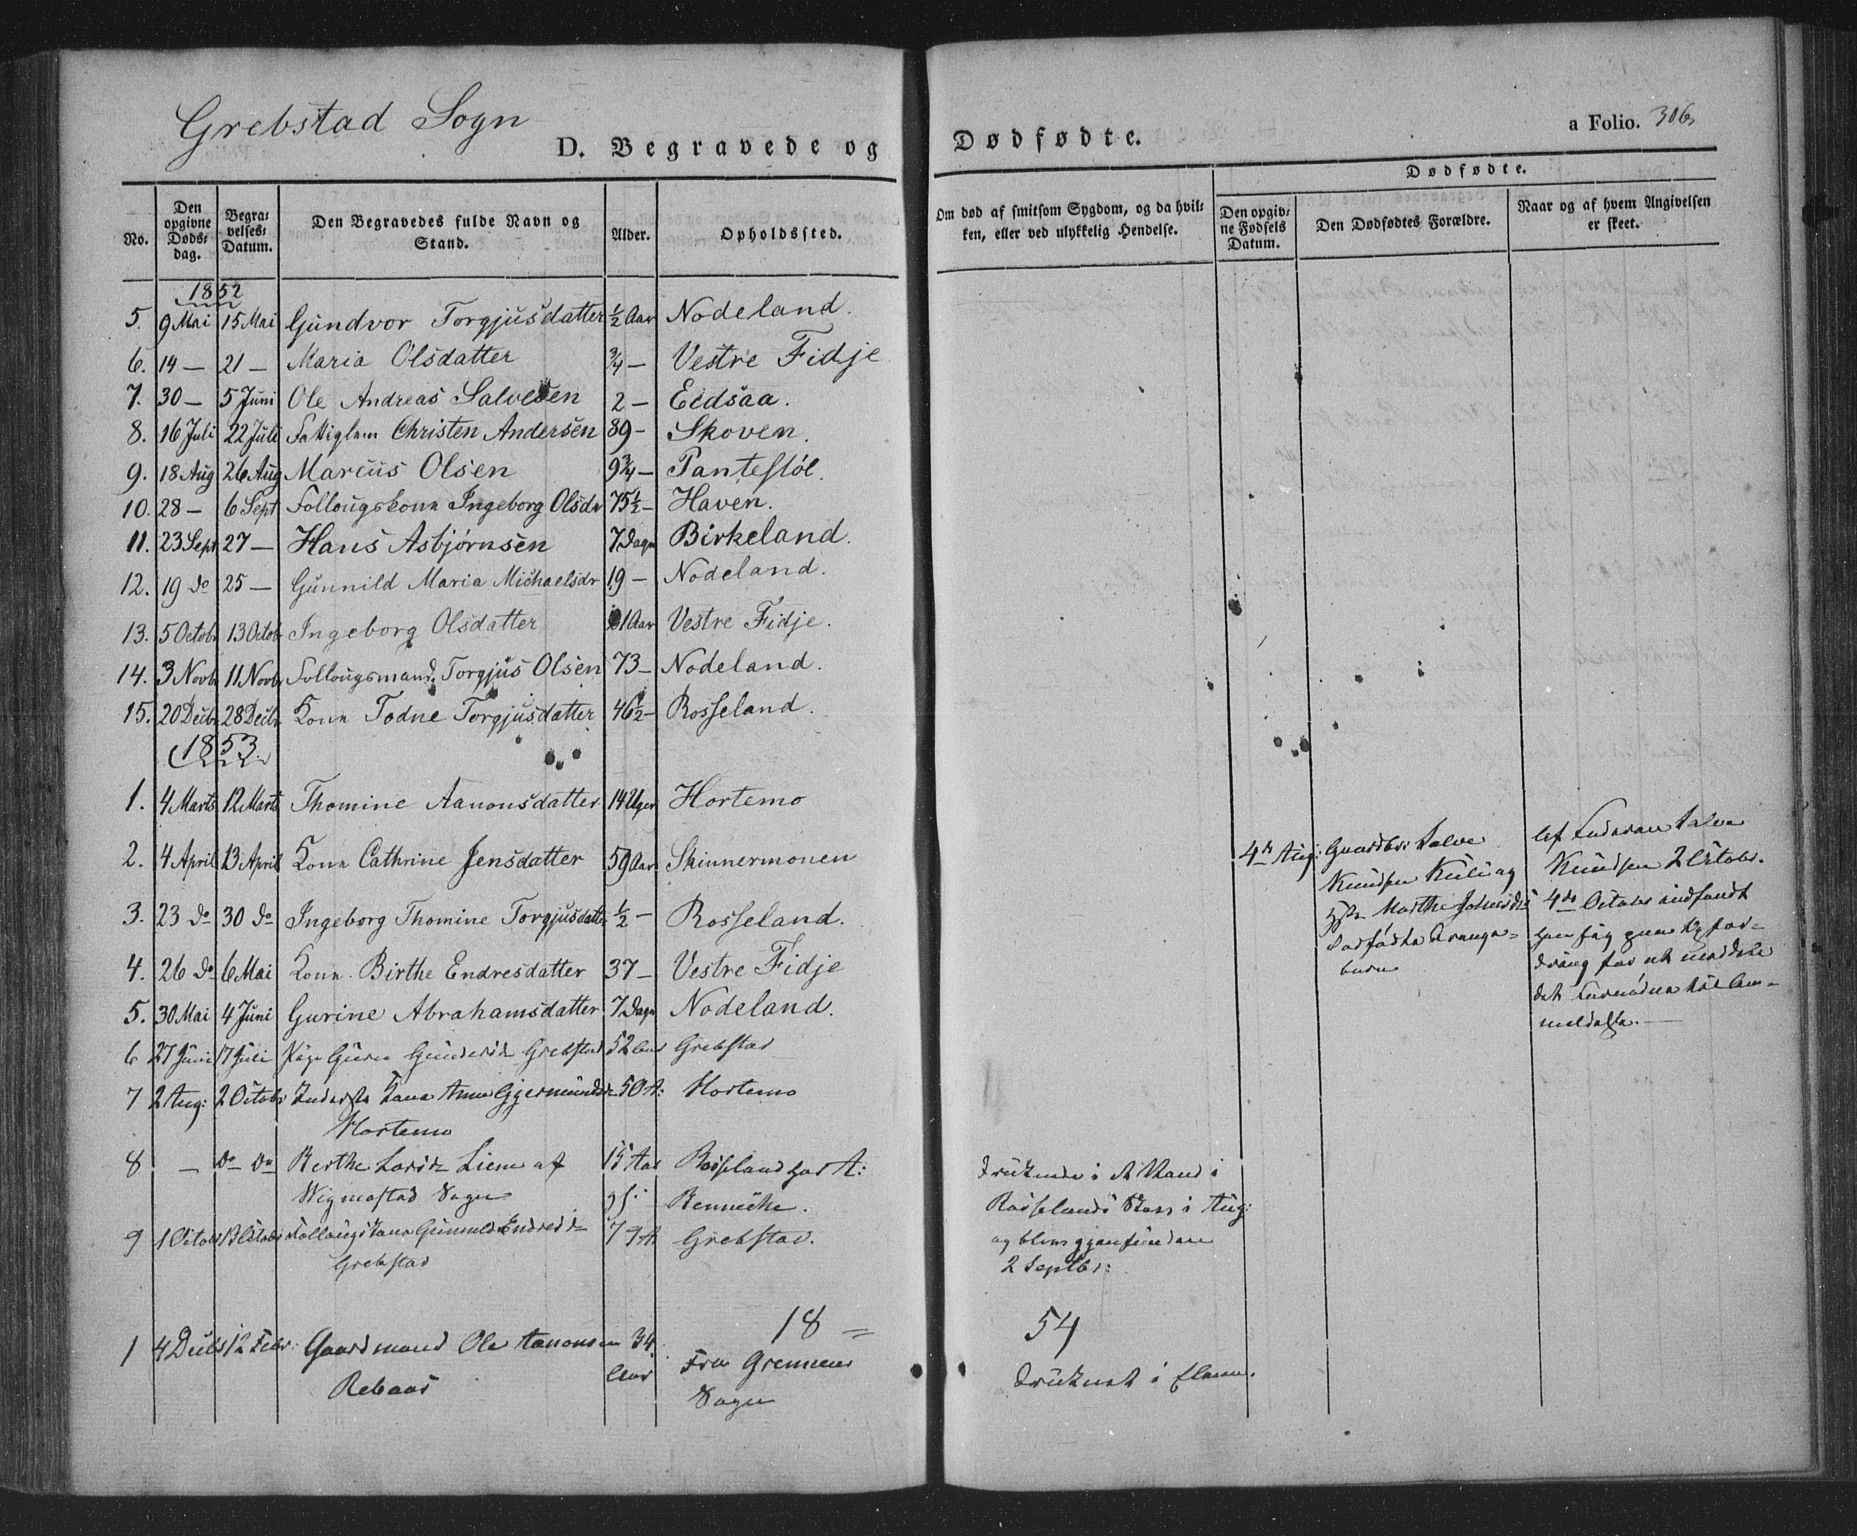 Grebstad Sogn
D. Begravede og Dødfødte.
a Folio. 306
No. | Den opgivne Døds-dag. | Begra-velses-Datum. | Den Begravedes fulde Navn og Stand. | Alder. | Opholdssted. | Om død af smitsom Sygdom, og da hvil-ken, eller ved ulykkelig Hendelse. | Dødfødte. | Den opgiv-ne Fødsels Datum. | Den Dødfødtes Forældre. | Naar og af hvem Angivelsen er skeet.
1852
5. 9 Mai 15 Mai Gundvor Torgjusdatter ½ Aar Nodeland.
6. 14 — 21 — Maria Olsdatter ¾ — Vestre Fidje
7. 30 — 5 Juni Ole Andreas Salvesen 2 — Eedsaa.
8. 16 Juli 22 Juli Fattiglem Christen Andersen 89 — Skoven.
9. 18 Aug 26 Aug Marcus Olsen 9¾ — Panteståøl.
10. 28 — 6 Sept Follougskone Ingeborg Olsdr 75½ — Haven.
11. 23 Sept 27 — Hans Asbjørnsen 7 Dage Birkeland.
12. 19 do 25 — Gunnild Maria Michaelsdr 19 — Nodeland.
13. 5 Octobr 13 Octobr Ingeborg Olsdatter 1 Aar Vestre Fidje.
14. 3 Novbr 11 Novbr Follougsmand Torgjus Olsen 73 — Nodeland.
15. 20 Decbr 28 Decbr Kone Todne Torgjusdatter 46½ — Rosseland.
1853
1. 4 Marts 12 Marts Thomine Aanonsdatter 14 Uger Hortemo
2. 4 April 13 April Kone Cathrine Jensdatter 59 Aar Skinnermonen
3. 23 do 30 do Ingeborg Thomine Torgjusdatter ½ — Rosseland.
4. 26 do 6 Mai Kone Birthe Endresdatter 37 — Vestre Fidje
5. 30 Mai 4 Juni Gurine Abrahamsdatter 7 Dage Nodeland.
6 27 Juni 17 Juli Pige Guro Gundersdr Grebstad 52 Aar Grebstad
7 2 Aug: 2 Octobr Kone Anne Gjermundsdr 50 A: Hortemo
Hortemo
8 — do do Berthe Larsdr Liene af 15 Aar Rosseland hos A:
Wigmostad Sogn Bennecke.
9 1 Octobr 13 Octobr Follougskone Gunnild Endresdr 79 A Grebstad.
Grebstad
Druknede i et Vand i
Rosselands i Aug:
og blev gjenfunden
2 Septbr:
4de Aug: Gaardbr: Salve
Knudsen Kuli og
Marthe
dødfødte Drenge-
barn
af Faderen Salve
Knudsen 2 Octobr.
4de Octobr indfandt
han sig paa Opfor-
dring for at meddele
det Fornødne til An-
meldelse. —
18 = 54
1 4 Decbr 12 Febr: Gaardmand Ole Aanonsen 34 Aar Fra Grennens Druknet i Elven.
Rebaas Sogn